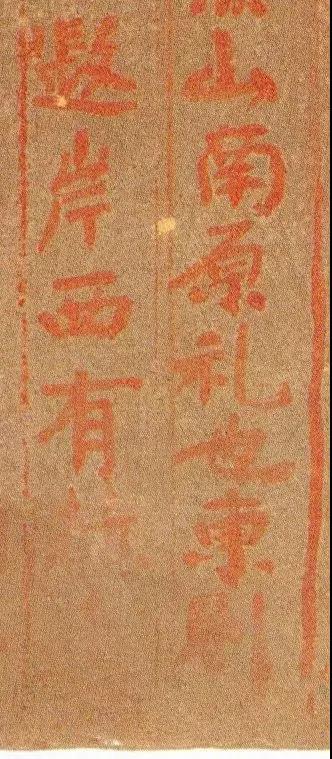 山南原礼也東則
遐岸西有